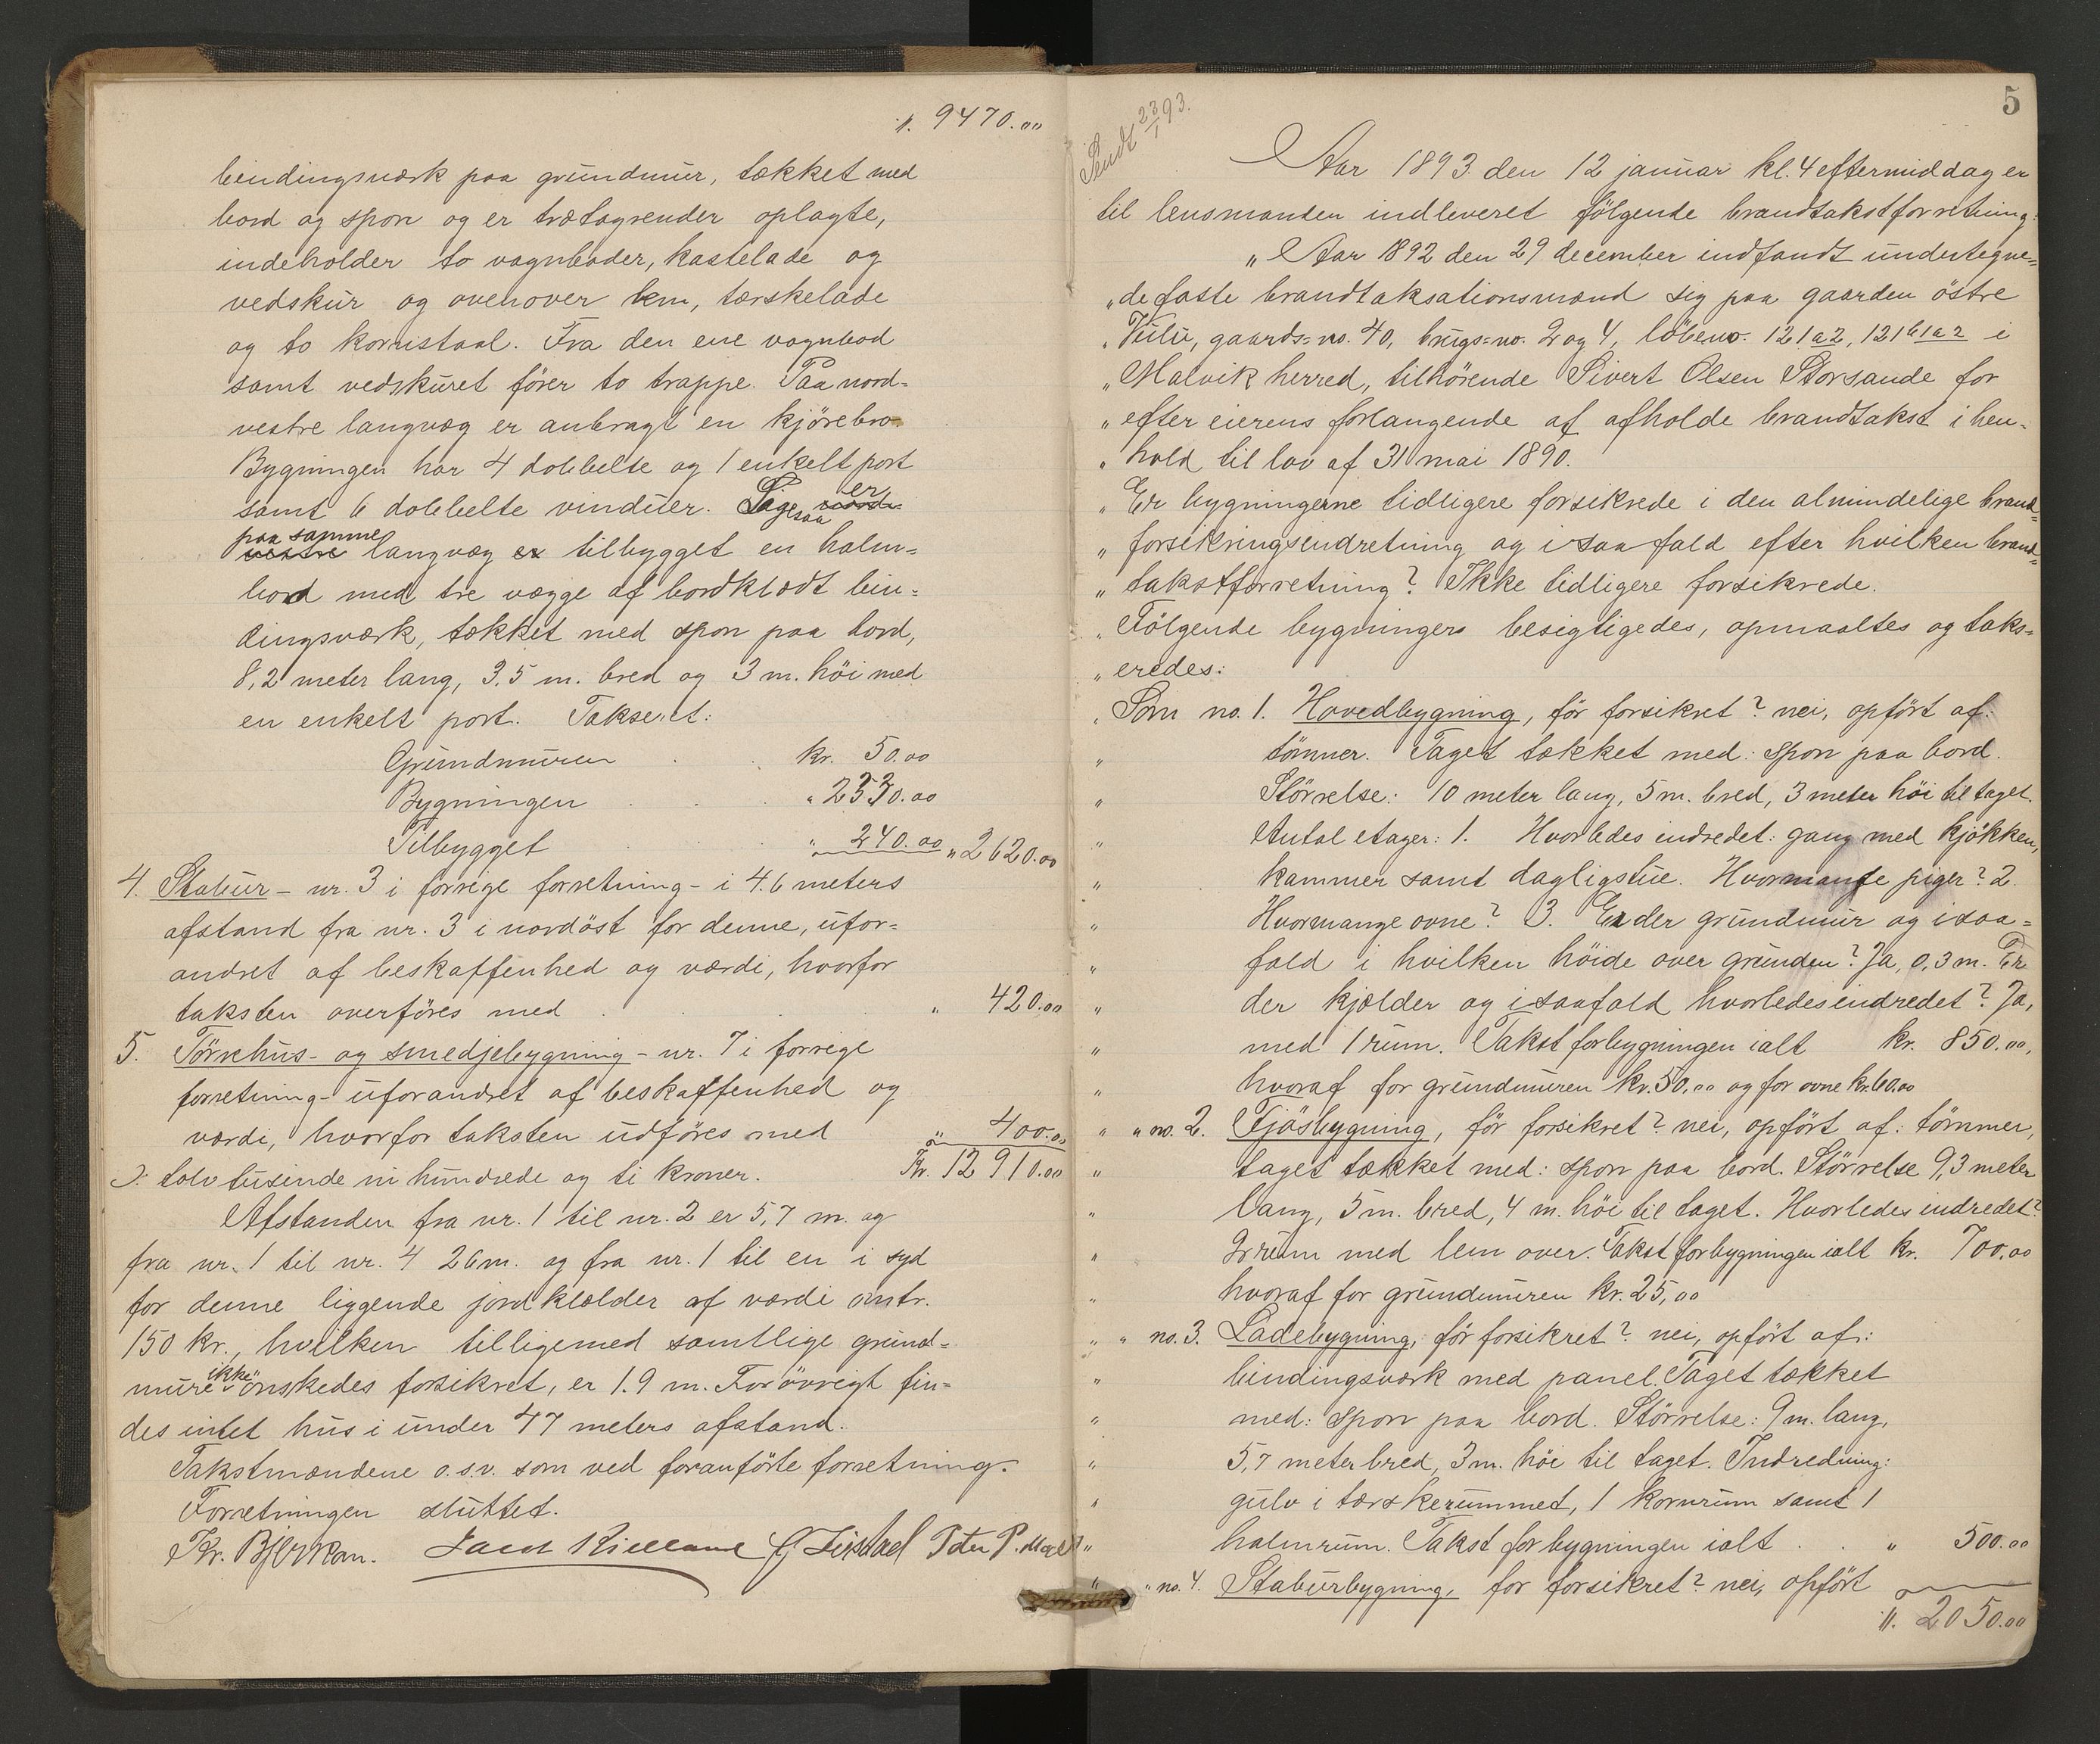 9470.00
bindingsværk paa grundmur, tækket med
bord og spon og er trætagrender oplagte,
indeholder to vognboder, kastelade og
vedskur og ovenover lem, tærskelade
og to kornstaal. Fra den ene vognbod
samt vedskuret förer to trappe. Paa nord-
vestre langvæg er anbragt en kjörebro.
Bygningen har 4 dobbelte og 1 enkelt port
samt 6 dobbelte vinduer. Ligesaa er
paa samme langvæg er tilbygget en halm-
bod med tre vægge af bordklædt bin-
dingsværk, tækket med spon paa bord,
8,2 meter lang, 3.5 m. bred og 3 m. höi med
en enkelt port. Takseret:
Grundmuren . . kr. 50.00
Bygningen . . . " 2330.00
Tilbygget . . . " 240.00 " 2620.00
4. Stabur - nr. 3 i forrige forretning - i 4.6 meters
afstand fra nr. 3 i nordöst for denne, ufor-
andret af beskaffenhed og værdi, hvorfor
taksten overföres med . . . " 420.00
5. Törrehus- og smedjebygning - nr. 7 i forrige
forretning - uforandret af beskaffenhed og
værdi, hvorfor taksten udföres med " 400.00
ɔ: tolv tusinde ni hundrede og ti kroner. Kr. 12910.00
Afstanden fra nr. 1 til nr. 2 er 5,7 m. og
fra nr. 1 til nr. 4 26 m. og fra nr. 1 til en i syd
for denne liggende jordkjælder af værdi omtr.
150 kr., hvilken tilligemed samtlige grund-
mure ikke önskedes forsikret, er 1.9 m. Forövrigt fin-
des intet hus i under 47 meters afstand.
Takstmændene o.s.v. som ved foranförte forretning.
Forretningen sluttet.
Kr. Bjerkan. Jacob Kielland Peter P.
5
Sendt 23/1 93.
Aar 1893 den 12 januar kl. 4 eftermiddag er
til lensmanden indleveret fölgende brandtakstforretning:
" Aar 1892 den 29 december indfandt undertegne-
" de faste brandtaksationsmænd sig paa gaarden östre
" Vulu, gaards-no. 40, brugs-no. 2 og 4, löbeno. 121a2, 121b1a2 i
" Malvik herred, tilhörende Sivert Olsen Storsande for
" efter eierens forlangende af afholde brandtakst i hen-
" hold til lov af 31 mai 1890.
" Er bygningerne tidligere forsikrede i den almindelige brand-
" forsikringsindretning og i saa fald efter hvilken brand-
" takstforretning? Ikke tidligere forsikrede.
" Fölgende bygninger besigtigedes, opmaaltes og taks-
" eredes:
" Som no. 1. Hovedbygning, för forsikret? nei, opfört af:
" tömmer. Taget tækket med: spon paa bord.
" Störrelse: 10 meter lang, 5 m. bred, 3 meter höi til taget.
" Antal etager: 1. Hvorledes indredet: gang med kjökken,
" kammer samt dagligstue. Hvormange piger? 2.
" Hvormange ovne? 3. Er der grundmur og i saa-
" fald i hvilken höide over grunden? Ja, 0,3 m. Er
" der kjælder og i saafald hvorledes indredet? Ja,
" med 1 rum. Takst for bygningen ialt kr. 850.00,
" hvoraf for grundmuren kr. 50.00 og for ovne kr. 60.00
" " no. 2. Fjösbygning, för forsikret? nei, opfört af: tömmer,
" taget tækket med: spon paa bord. Störrelse 9,3 meter
" lang, 5 m. bred, 4 m. höi til taget. Hvorledes indredet?
" 2 rum med lem over. Takst for bygningen ialt kr. 700.00
" hvoraf for grundmuren kr. 25,00
" " no. 3. Ladebygning, för forsikret? nei, opfört af:
" bindingsværk med panel. Taget tækket
" med: spon paa bord. Störrelse: 9 m. lang,
" 5,7 meter bred, 3 m. höi til taget. Indredning:
" gulv i tærskerummet, 1 kornrum samt 1
" halmrum. Takst for bygningen ialt . . " 500.00
" " no. 4. Staburbygning, för forsikret? nei, opfört
2050.00